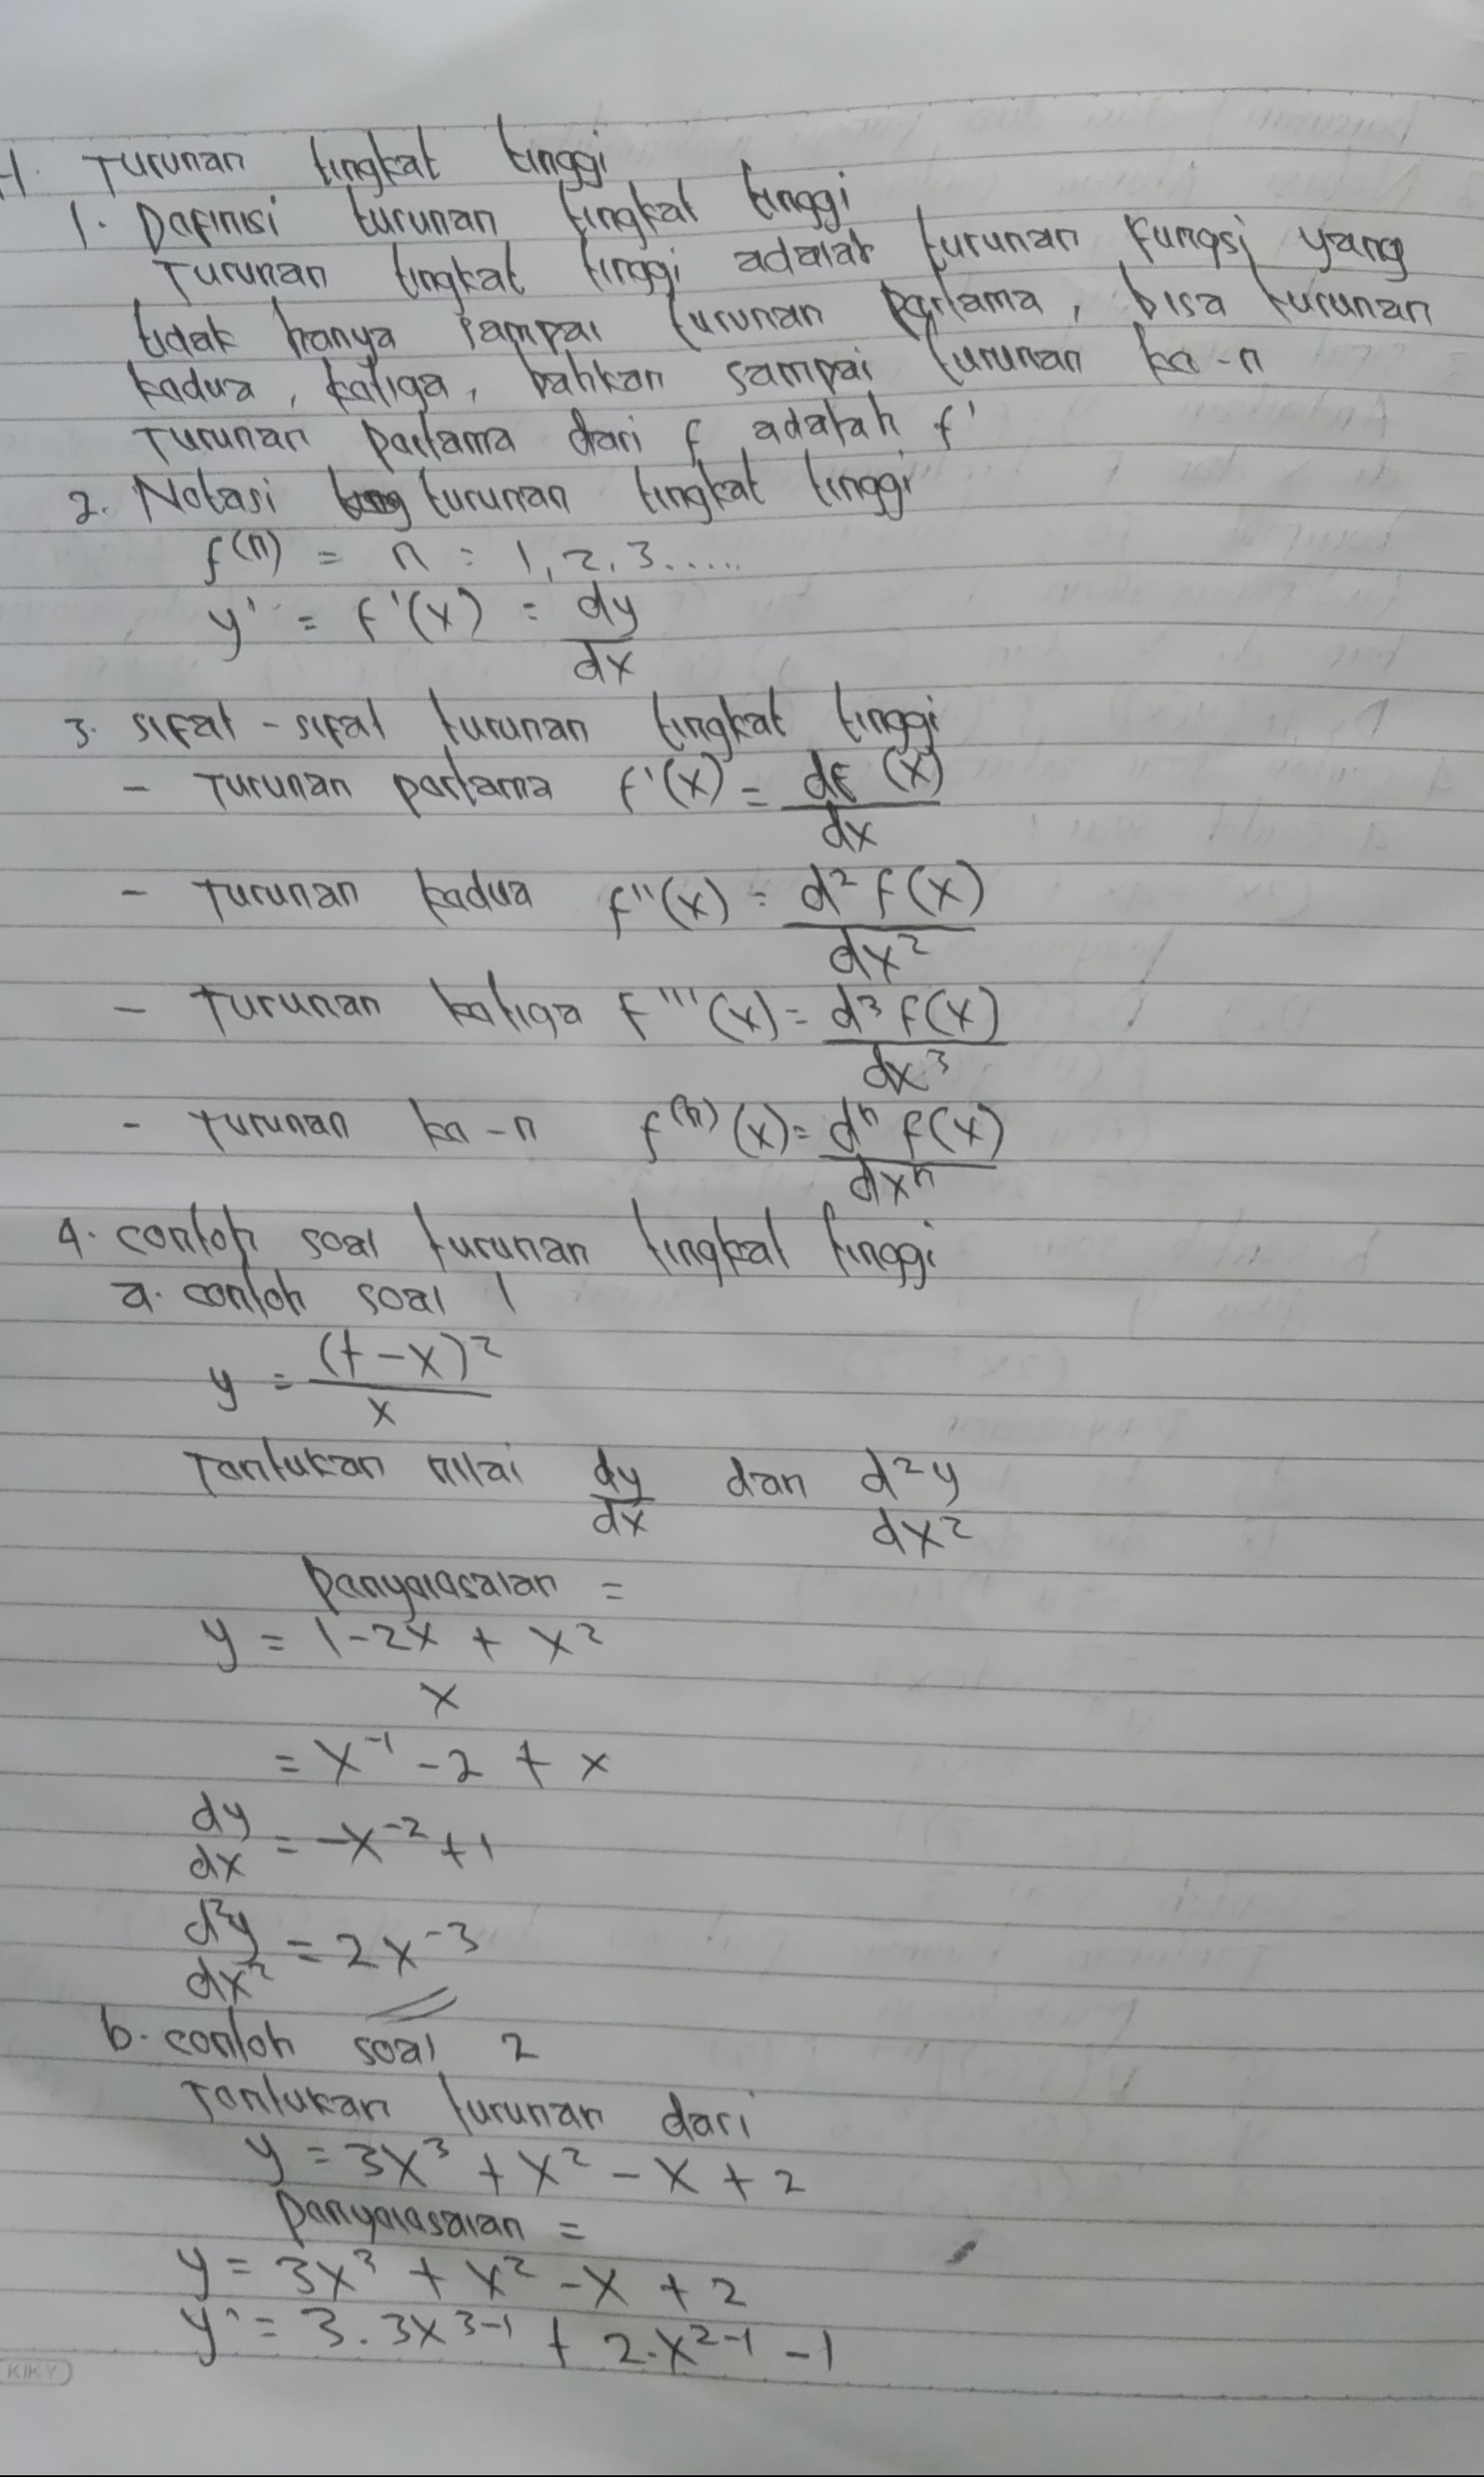 H. Turunan tingkat tinggi
1. Definisi turunan tingkat tinggi
Turunan tingkat tinggi adalah turunan fungsi yang
tidak hanya sampai turunan pertama, bisa turunan
kedua, ketiga, bahkan sampai turunan ke-n
Turunan pertama dari f adalah f'
2. Notasi turunan tingkat tinggi
f(n) = n = 1, 2, 3.....
y' = f'(x) = dy/dx
3. sifat-sifat turunan tingkat tinggi
- Turunan pertama f'(x) = df(x)/dx
- Turunan kedua f''(x) = d²f(x)/dx²
- Turunan ketiga f'''(x) = d³f(x)/dx³
- Turunan ke-n f⁽ⁿ⁾(x) = dⁿf(x)/dxⁿ
4. contoh soal turunan tingkat tinggi
a. contoh soal 1
y = (1-x)²/x
Tentukan nilai dy/dx dan d²y/dx²
penyelesaian =
y = 1-2x + x²
x
= x⁻¹ - 2 + x
dy/dx = -x⁻² + 1
d²y/dx² = 2x⁻³
b. contoh soal 2
Tentukan turunan dari
y = 3x³ + x² - x + 2
penyelesaian =
y = 3x³ + x² - x + 2
y' = 3.3x³⁻¹ + 2.x²⁻¹ - 1
KIKY